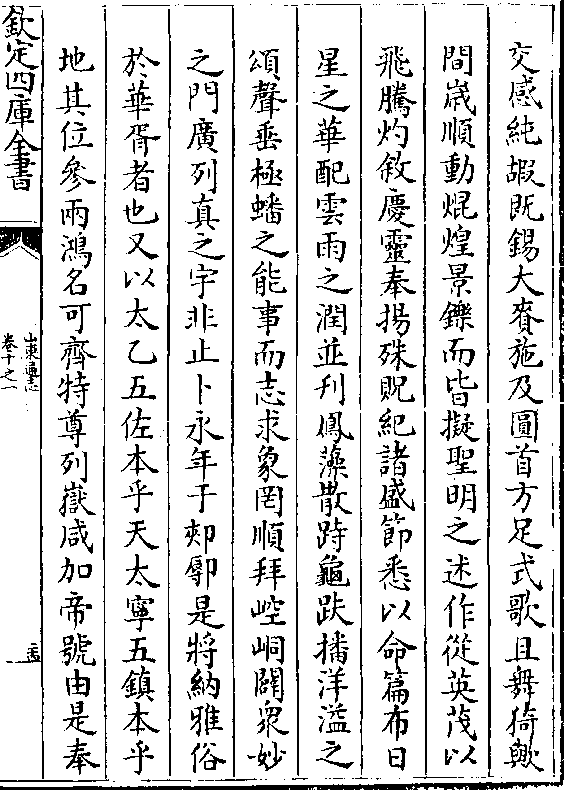 交感純嘏既錫大賚施及圓首方足式歌且舞猗歟
間嵗順動焜煌景鑠而皆擬聖明之述作從英茂以
飛騰灼敘慶靈奉揚殊貺紀諸盛節悉以命篇布日
星之華配雲雨之潤並刋鳳藻散跱龜趺播洋溢之
頌聲垂極蟠之能事而志求象罔順拜崆峒闢衆妙
之門廣列真之宇非止卜永年于郟鄏是將納雅俗
於華胥者也又以太乙五佐本乎天太寧五鎮本乎
地其位參兩鴻名可齊特尊列嶽咸加帝號由是奉
欽定四庫全書
山東通志
卷十之一